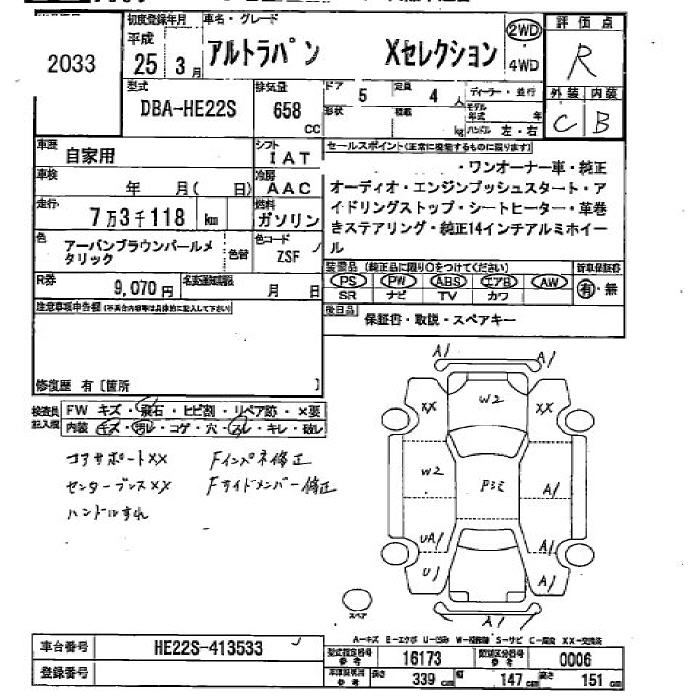 2033
初度登録年月 車名・グレード
平成 25 3月 アルトラパン Xセレクション 2WD・4WD
評価点 R
型式 DBA-HE22S
排気量 658 CC
ドア 5 定員 4人 ディーラー・並行
形状 積載 kg モデル年式 年 ハンドル 左・右
外装 内装
C B
車歴 自家用
シフト IAT
セールスポイント(正常に機能するものに限ります)
車検 年 月( 日)
冷房 AAC
・ワンオーナー車・純正
オーディオ・エンジンプッシュスタート・ア
イドリングストップ・シートヒーター・革巻
きステアリング・純正14インチアルミホイー
ル
走行 7万3千118 km
燃料 ガソリン
色 アーバンブラウンパールメ
タリック 色替
色コード ZSF
装備品(純正品に限り○をつけてください) 新車保証書
PS PW ABS エアB AW 有・無
SR ナビ TV カワ
R券 9,070円 名変通知期限 月 日
後日品 保証書・取説・スペアキー
注意事項申告欄(不具合内容等は具体的に記入して下さい)
修復歴 有〔箇所 〕
検査員記入欄
FW キズ・飛石・ヒビ割・リペア跡・×要
内装 キズ・汚レ・コゲ・穴・スレ・キレ・破レ
コアサポートXX Fインパネ修正
センターブレスXX Fサイドメンバー修正
ハンドルすれ
A1 A1
XX W2 XX
W2 A1
UA1 A1
U1 A1
A1
スペア
A-キズ E-エクボ U-凹み W-補修跡 S-サビ C-腐食 XX-交換済
車台番号 HE22S-413533
登録番号
型式指定番号 参考 16173 類別区分番号 参考 0006
長さ 339 cm 幅 147 cm 高さ 151 cm